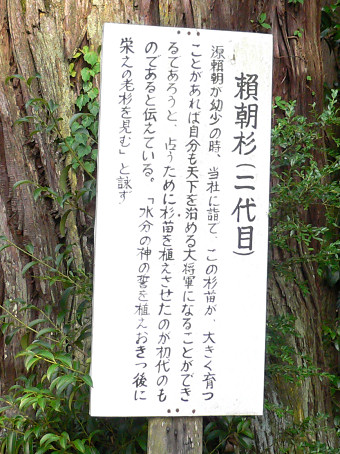 頼朝杉(二代目)
源頼朝が幼少の時、当社に詣て、この杉苗が、大きく育つ
ことがあれば自分も天下を治める大将軍になることができ
るであろうと、占うために杉苗を植えさせたのが初代のも
のであると伝えている。「水分の神の誓を植えおきつ後に
栄えの老杉を見む」と詠ず